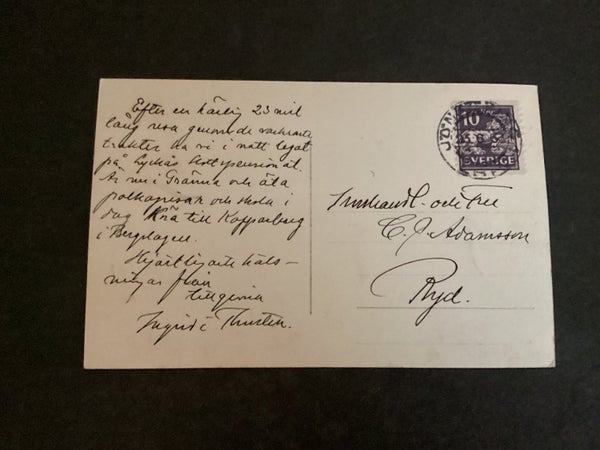 Efter en härlig 23 mil
lång resa genom de vackraste
trakter ha vi i natt legat
på Lyckås slottspensionat.
Äro nu i Gränna och äta
polkagrisar och skola i
dag köra till Kopparberg
i Bergslagen.
Hjärtligaste häls-
ningar från
tillgivna
Ingrid & Thursten.
10
SVERIGE
JÖN
och Fru
C. J. Adamsson
Ryd.